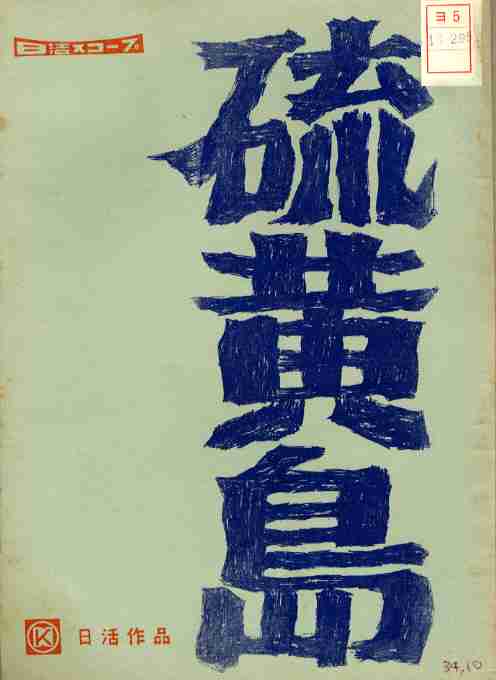 日活スコープ
ヨ5
硫黄島
K
日活作品
34,10